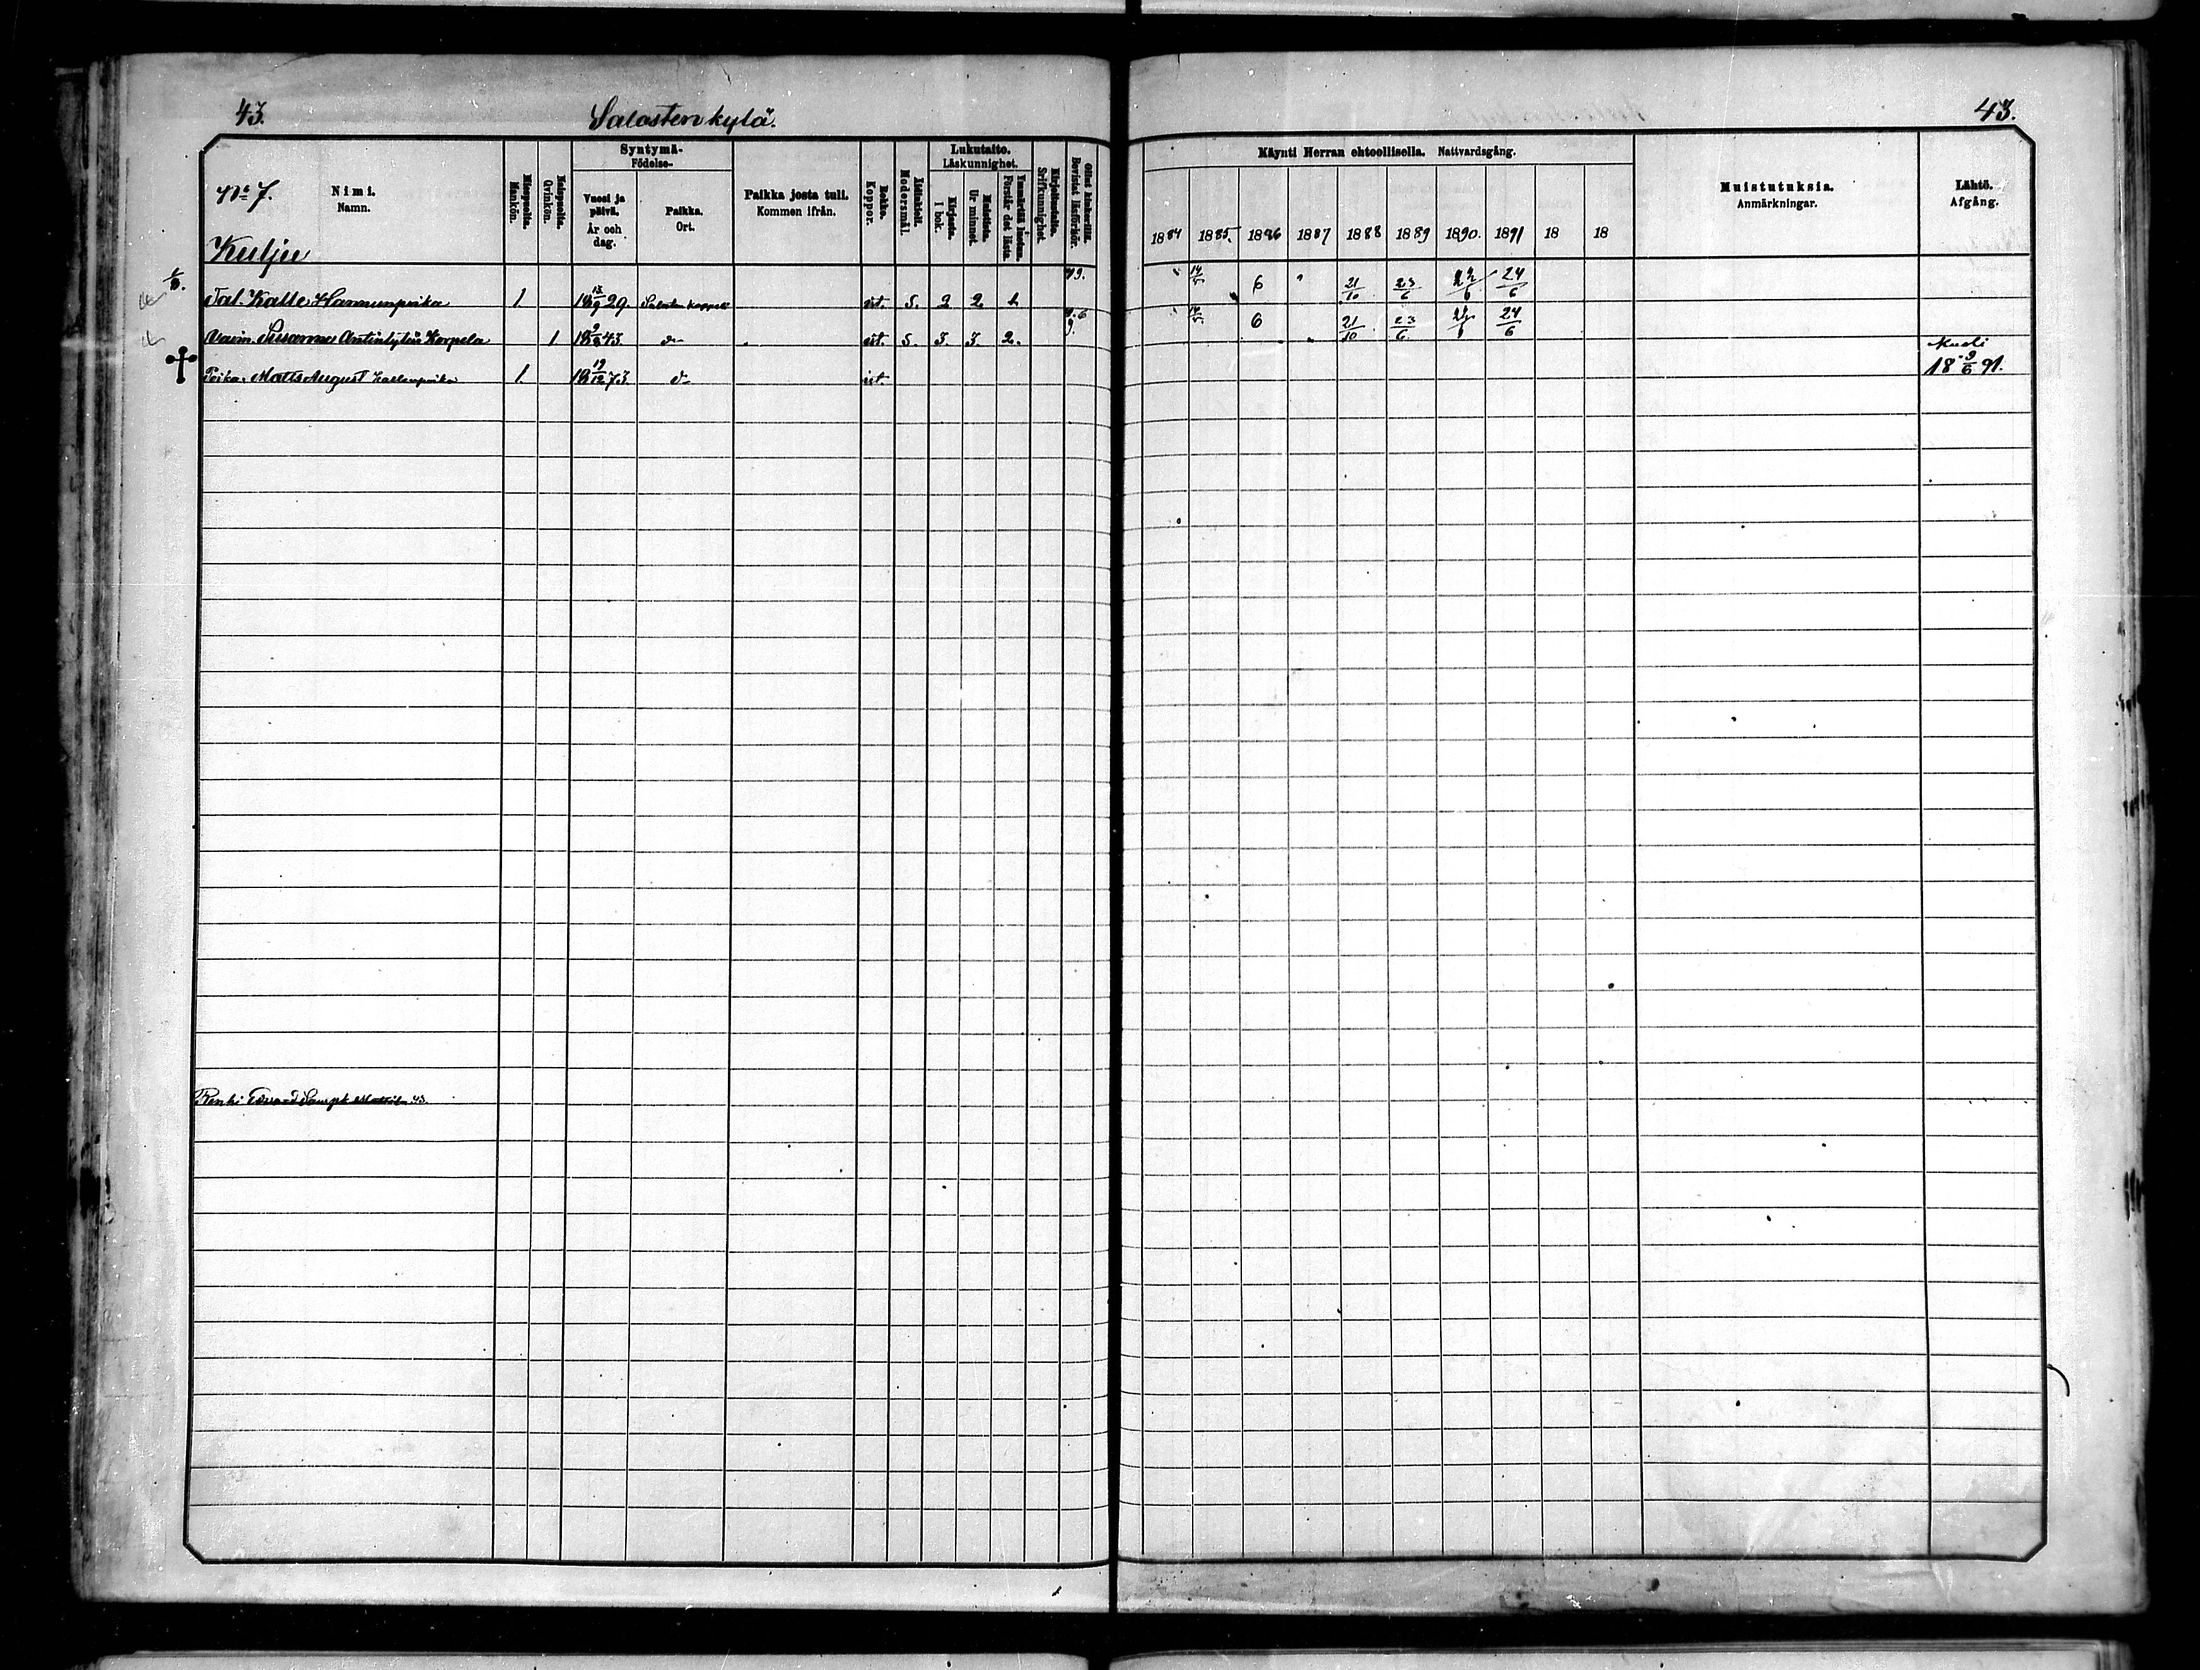 43.
Salosten kylä.
43.
No 7.
Nimi.
Namn.
Miespuolta.
Mankön.
Naispuolta.
Qvinkön.
Syntymä-
Födelse-
Vuosi ja päivä.
År och dag.
Paikka.
Ort.
Paikka josta tuli.
Kommen ifrån.
Rokko.
Koppor.
Äidinkieli.
Modersmål.
Lukutaito.
Läskunnighet.
Kirjasta.
I bok.
Muistista.
Ur minnet.
Ymmärtää lukean.
Förstår det lästa.
Kirjoitustaito.
Srifkunnighet.
Ollut kinkerillä.
Bevistat läsförhör.
Käynti Herran ehtoollisella. Nattvardsgång.
1884 1885. 1886 1887 1888 1889 1890. 1891 18 18
Muistutuksia.
Anmärkningar.
Lähtö.
Afgång.
Kulju
Tal. Kalle Hannunpoika 1 18 13/9 29. Salosten kappeli rit. 5. 2 2 2 79. " 14/5 6 " 21/10 23/6 24/6
Vaim. Susanna Antintytär Korpela 1 18 43 do rit. 5. 3. 3. 2. " 14/5 6 21/10 23/6 24/6
Poika. Matts August Kallenpoika 1. 18 19/12 73. do rit. kuoli 18 9/6 91.
Renki Edvard 43.